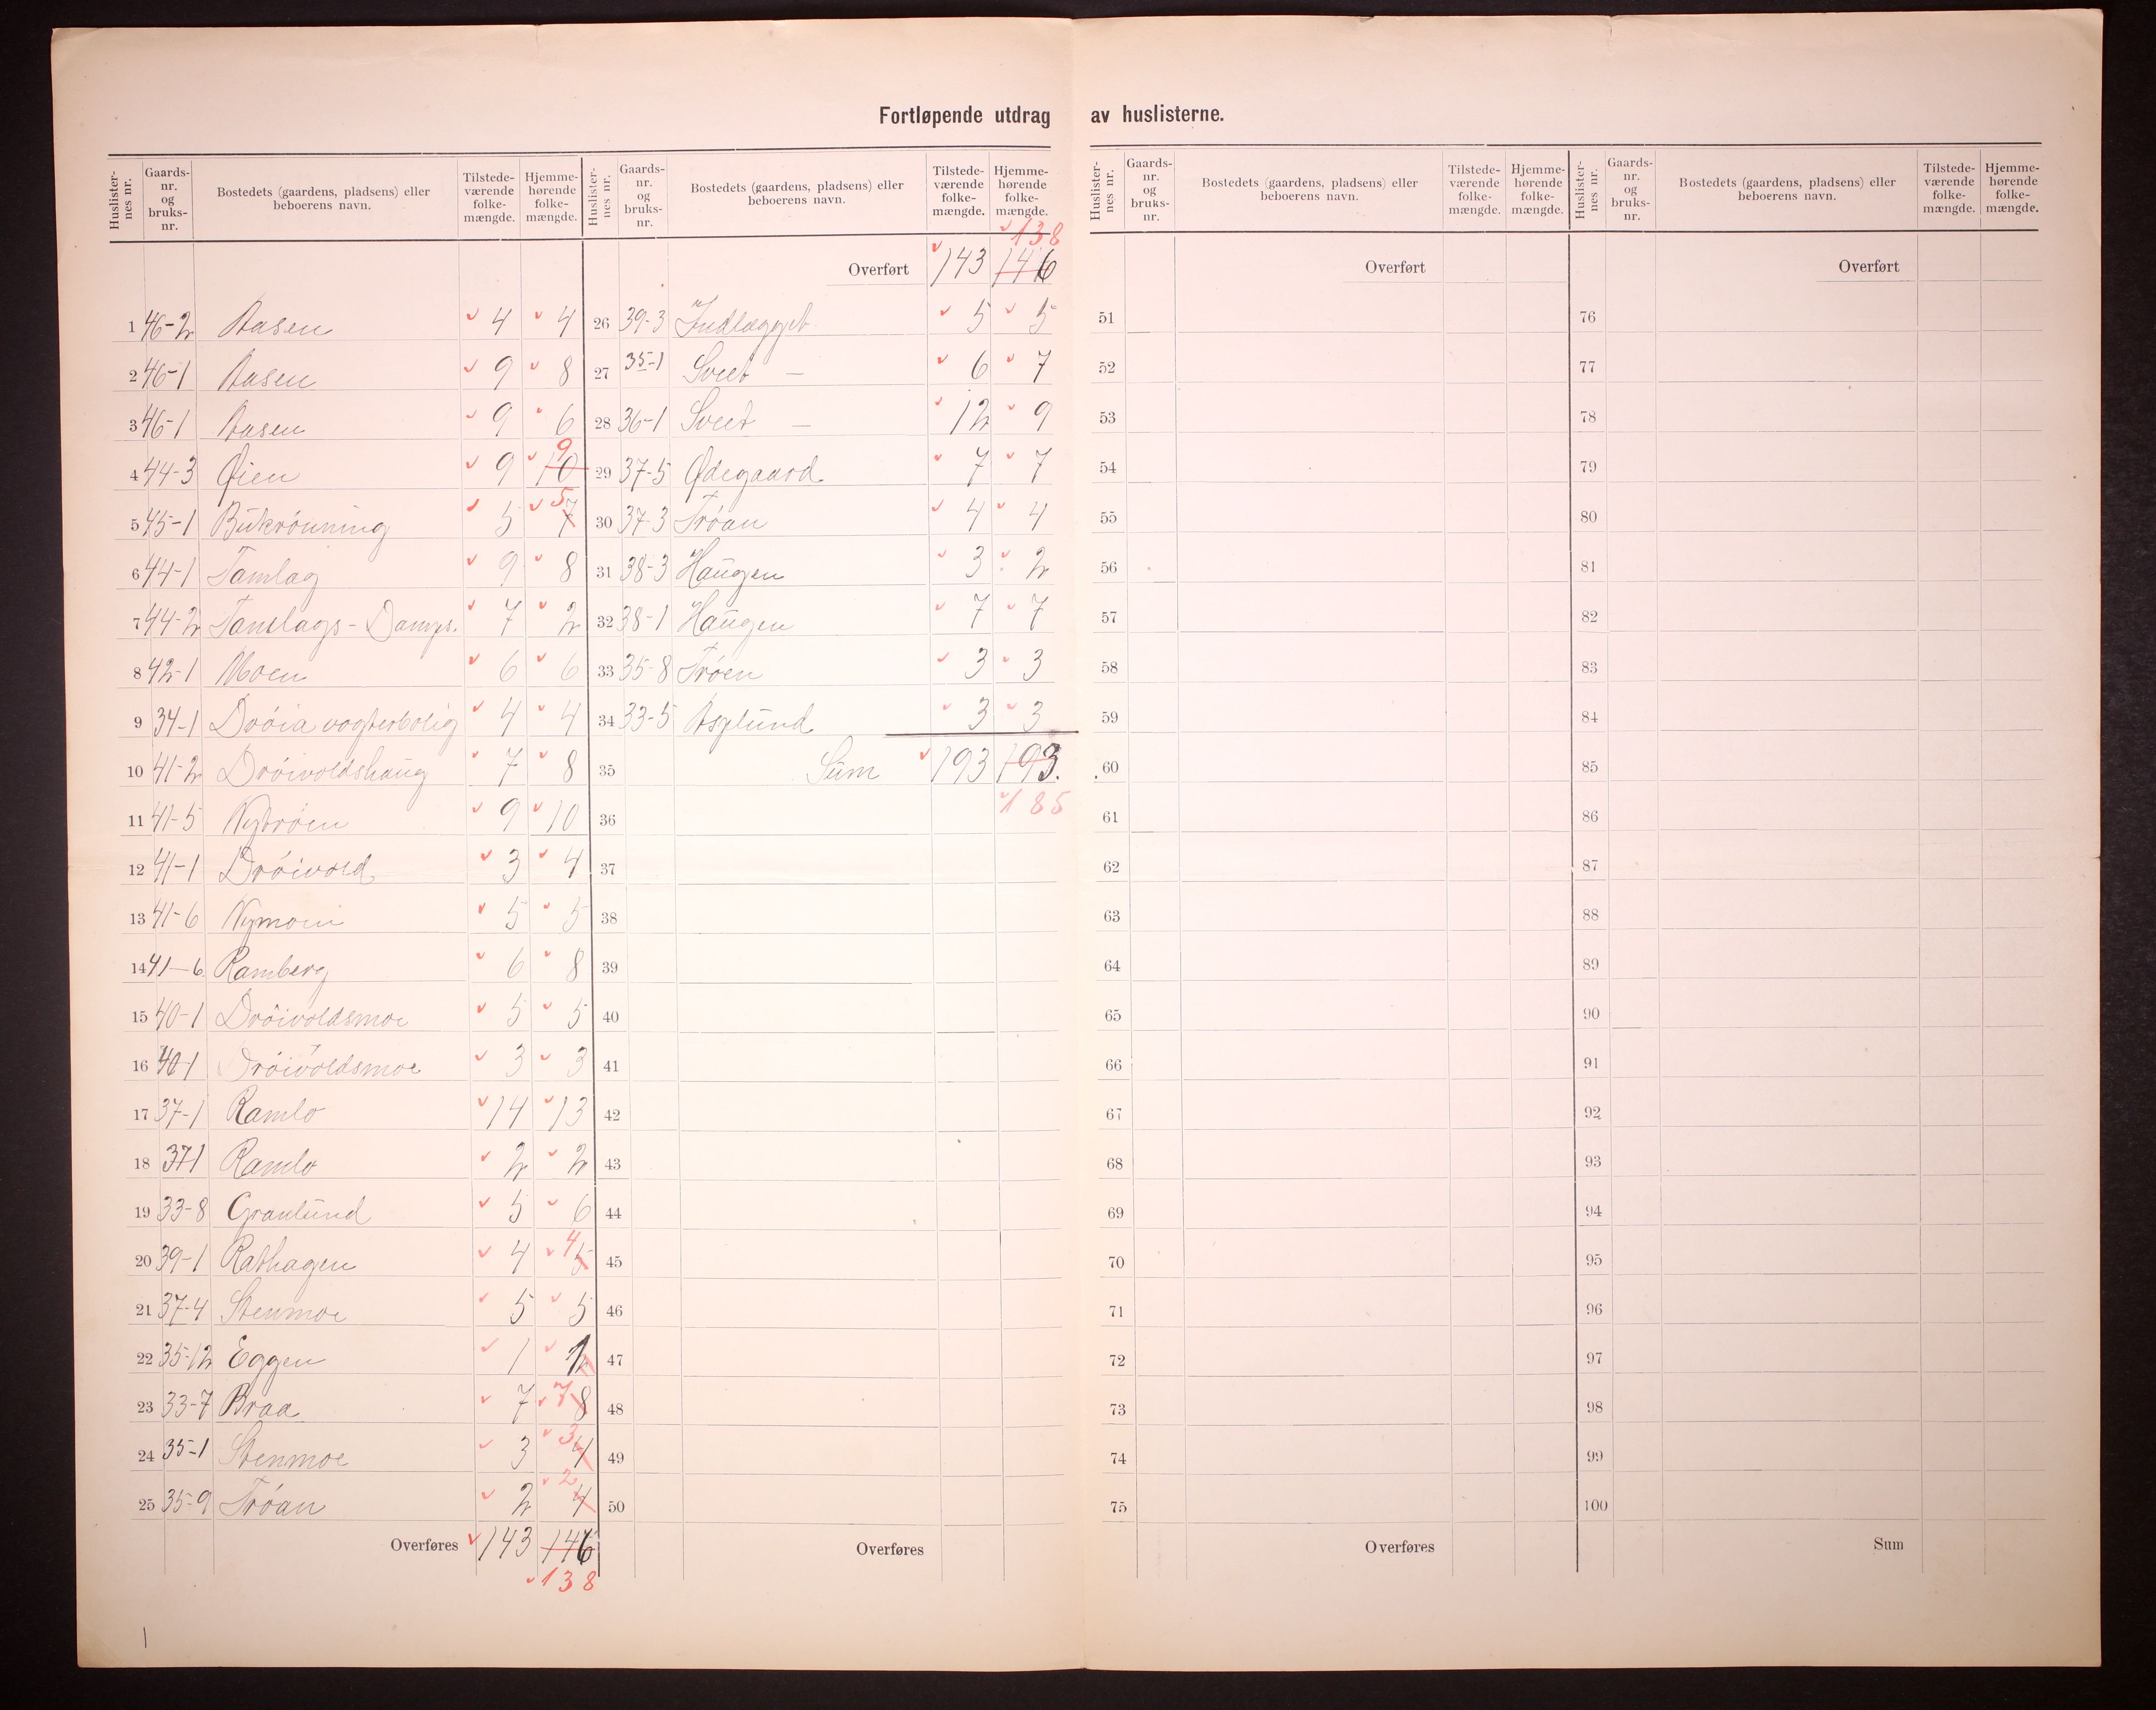 Fortløpende utdrag av huslisterne.
Huslisternes nr. Gaards-nr. og bruks-nr. Bostedets (gaardens, pladsens) eller beboerens navn. Tilstedeværende folkemængde. Hjemmehørende folkemængde.
1 46-2 Aasen 4 4
2 46-1 Aasen 9 8
3 46-1 Aasen 9 6
4 44-3 Øien 9 10 9
5 45-1 Bukrönning 5 7 5
6 44-1 Tamlag 9 8
7 44-2 Tamlags-Damps. 7 2
8 42-1 Moen 6 6
9 34-1 Dröia vogterbolig 4 4
10 41-2 Dröivoldshaug 7 8
11 41-5 Nytröen 9 10
12 41-1 Dröivold 3 4
13 41-6 Nymoen 5 5
14 41-6 Ramberg 6 8
15 40-1 Dröivoldsmoe 5 5
16 40-1 Dröivoldsmoe 3 3
17 37-1 Ramlo 14 13
18 37-1 Ramlo 2 2
19 33-8 Granlund 5 6
20 39-1 Rathagen 4 5 4
21 37-4 Stenmoe 5 5
22 35-12 Eggen 1 1
23 33-7 Braa 7 8 7
24 35-1 Stenmoe 3 4 3
25 35-9 Tröan 2 4 2
Overføres 143 146
138
1
Huslisternes nr. Gaards-nr. og bruks-nr. Bostedets (gaardens, pladsens) eller beboerens navn. Tilstedeværende folkemængde. Hjemmehørende folkemængde.
138
Overført 143 146
26 39-3 Indlægget 5 5
27 35-1 Sveet — 6 7
28 36-1 Sveet — 12 9
29 37-5 Ødegaard 7 7
30 37-3 Tröan 4 4
31 38-3 Haugen 3 2
32 38-1 Haugen 7 7
33 35-8 Tröen 3 3
34 33-5 Asplund 3 3
35 Sum 193 193.
185
36
37
38
39
40
41
42
43
44
45
46
47
48
49
50
Overføres
Huslisternes nr. Gaards-nr. og bruks-nr. Bostedets (gaardens, pladsens) eller beboerens navn. Tilstedeværende folkemængde. Hjemmehørende folkemængde.
Overført
51
52
53
54
55
56
57
58
59
60
61
62
63
64
65
66
67
68
69
70
71
72
73
74
75
Overføres
Huslisternes nr. Gaards-nr. og bruks-nr. Bostedets (gaardens, pladsens) eller beboerens navn. Tilstedeværende folkemængde. Hjemmehørende folkemængde.
Overført
76
77
78
79
80
81
82
83
84
85
86
87
88
89
90
91
92
93
94
95
96
97
98
99
100
Sum